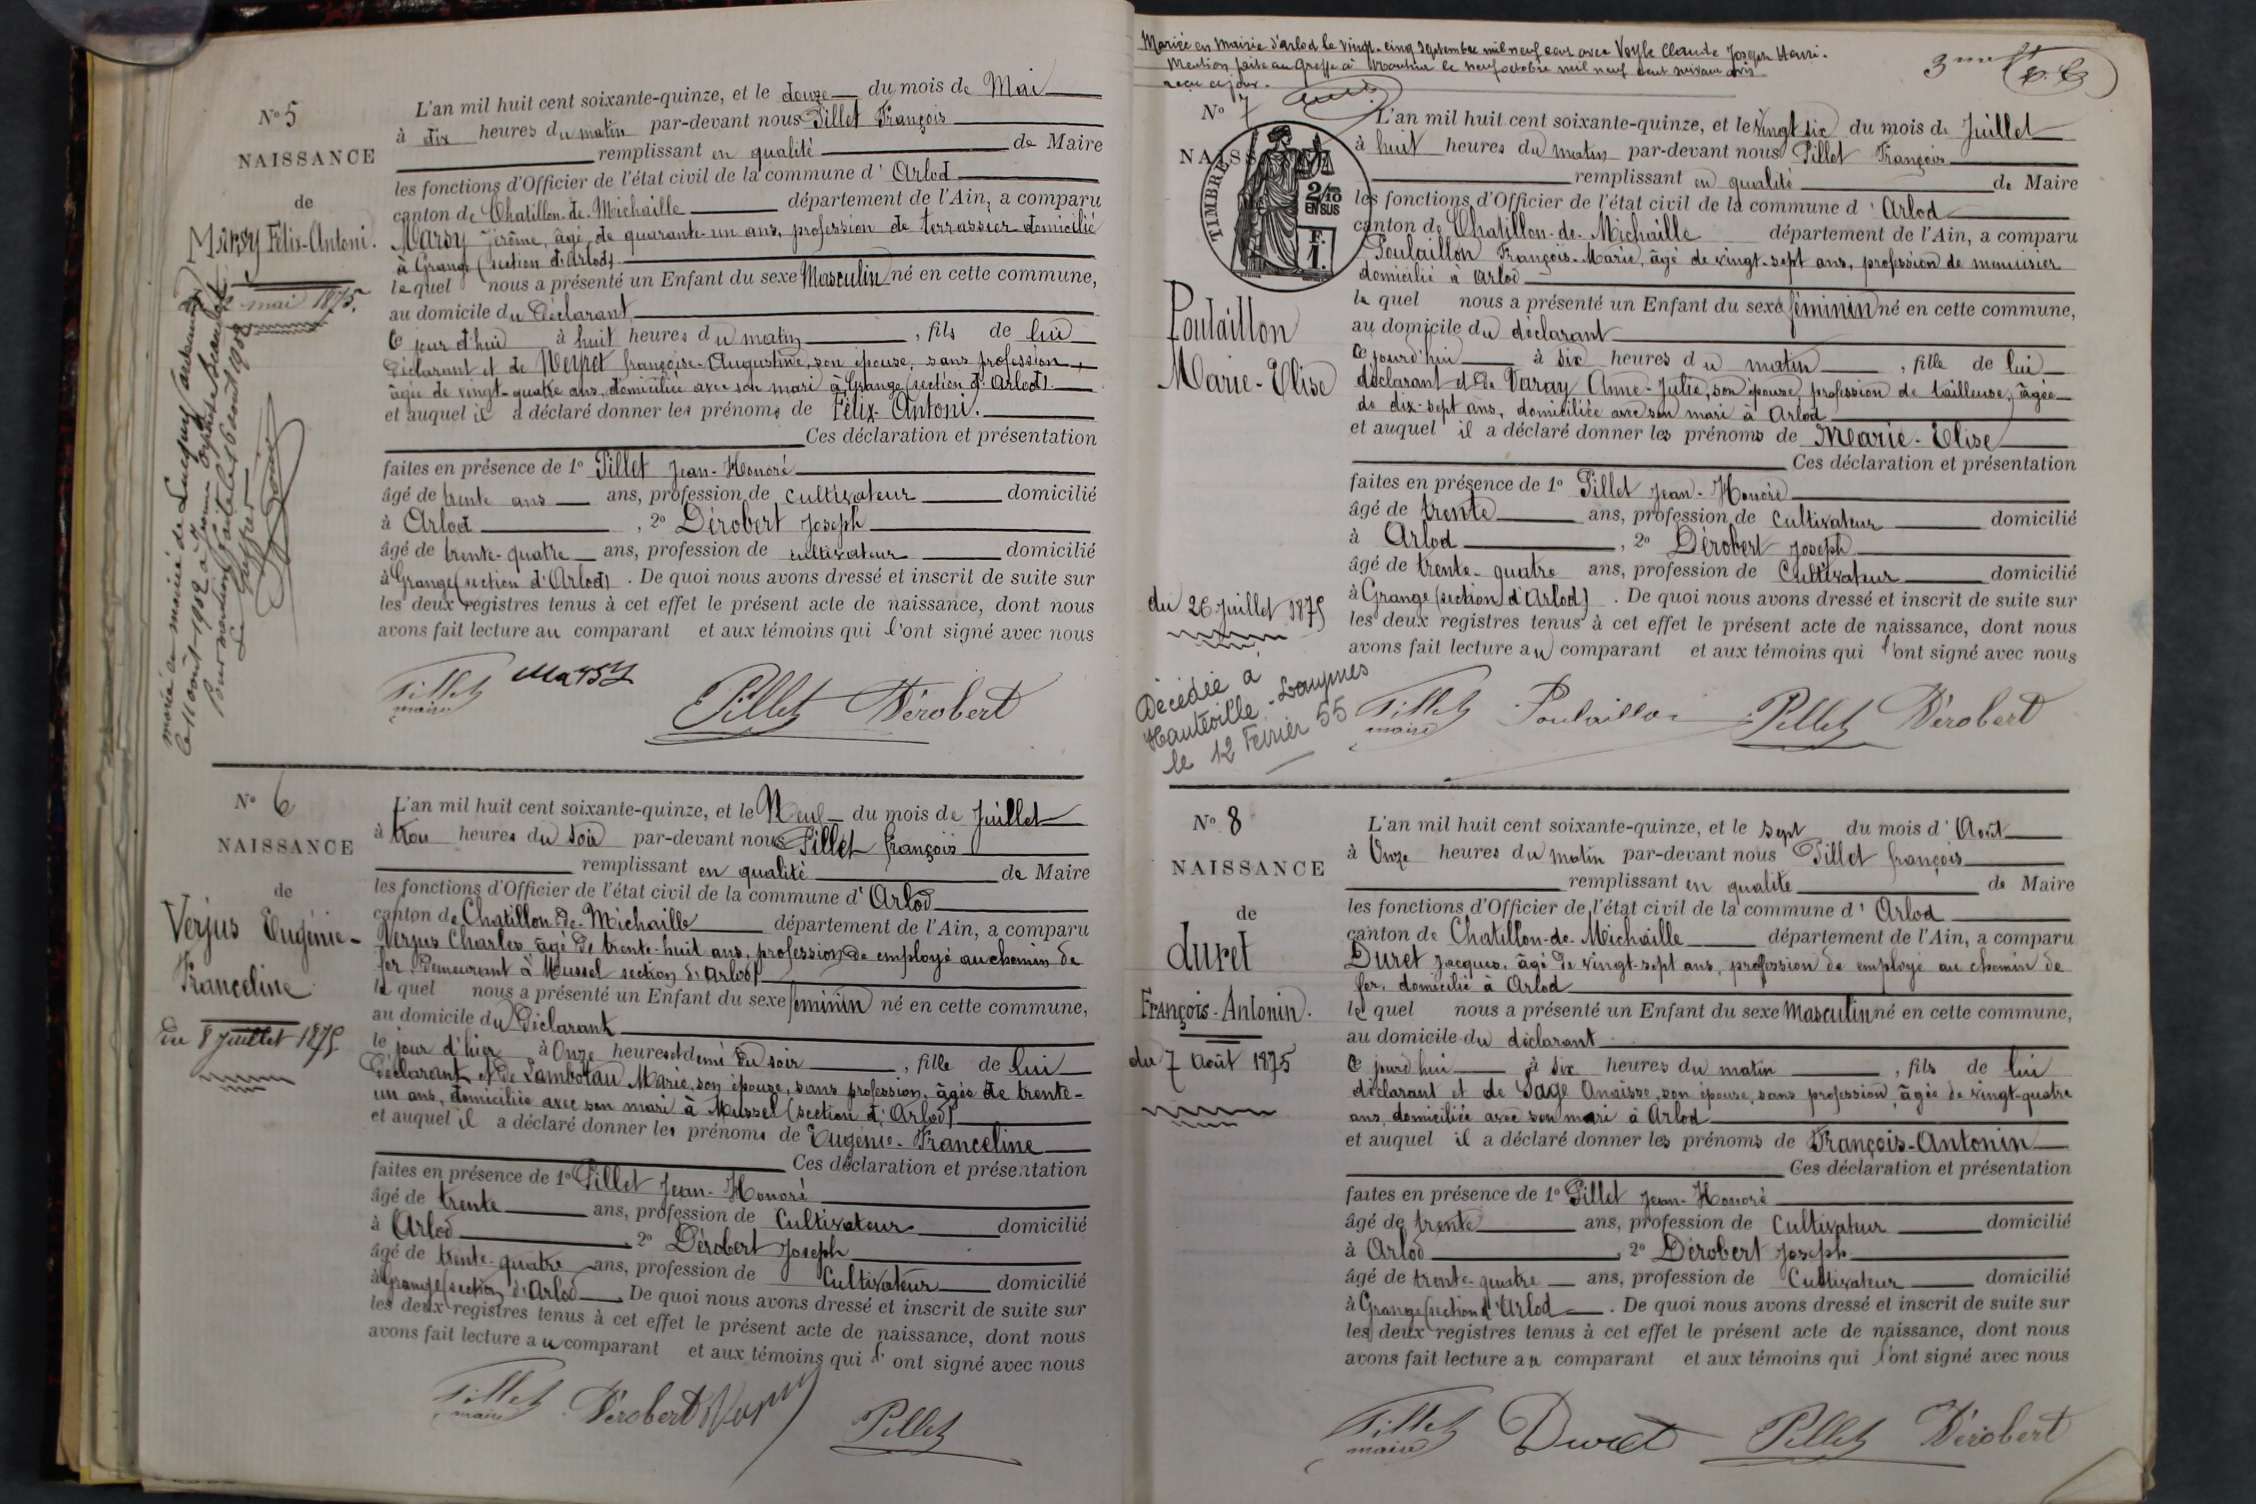 N° 5
NAISSANCE
de
Marsy Félix-Antoni.
mai 1875.
marié à la mairie de
Le 11 août 1902 à
Pour mention faite le 16 août 1902
Le greffier
L'an mil huit cent soixante-quinze, et le douze du mois de Mai
à dix heures du matin par-devant nous Pillet François
remplissant en qualité de Maire
les fonctions d'Officier de l'état civil de la commune d' Arlod
canton de Chatillon-de-Michaille département de l'Ain, a comparu
Marsy Jérôme, âgé de quarante-un ans, profession de terrassier domicilié
à Grange (section d'Arlod)
lequel nous a présenté un Enfant du sexe Masculin né en cette commune,
au domicile du Déclarant
Ce jour d'hui à huit heures du matin, fils de lui
Déclarant et de françoise-Augustine, son épouse, sans profession,
âgée de vingt-quatre ans, domiciliée avec son mari à Grange (section d'Arlod).
et auquel il a déclaré donner les prénoms de Félix-Antoni.
Ces déclaration et présentation
faites en présence de 1° Pillet Jean-Honoré
âgé de trente ans ans, profession de cultivateur domicilié
à Arlod, 2° Dérobert Joseph
âgé de trente-quatre ans, profession de cultivateur domicilié
à Grange (section d'Arlod). De quoi nous avons dressé et inscrit de suite sur
les deux registres tenus à cet effet le présent acte de naissance, dont nous
avons fait lecture au comparant et aux témoins qui l'ont signé avec nous
Pillet Marsy Pillet Dérobert
maire
N° 6
NAISSANCE
de
Verjus Eugénie-
Franceline
du 8 Juillet 1875
L'an mil huit cent soixante-quinze, et le Neuf du mois de Juillet
à trois heures du soir par-devant nous Pillet François
remplissant en qualité de Maire
les fonctions d'Officier de l'état civil de la commune d' Arlod
canton de Chatillon-de-Michaille département de l'Ain, a comparu
Verjus Charles âgé de trente-huit ans, profession de employé au chemin de
fer, Demeurant à Mussel section d'Arlod
lequel nous a présenté un Enfant du sexe féminin né en cette commune,
au domicile du Déclarant
le jour d'hier à Onze heures et demi du soir, fille de lui
Déclarant et de Marie, son épouse, sans profession, âgée de trente-
un ans, domiciliée avec son mari à Mussel (section d'Arlod)
et auquel il a déclaré donner les prénoms de Eugénie-Franceline
Ces déclaration et présentation
faites en présence de 1° Pillet Jean-Honoré
âgé de trente ans, profession de Cultivateur domicilié
à Arlod, 2° Dérobert Joseph
âgé de trente-quatre ans, profession de Cultivateur domicilié
à Grange (section d'Arlod. De quoi nous avons dressé et inscrit de suite sur
les deux registres tenus à cet effet le présent acte de naissance, dont nous
avons fait lecture au comparant et aux témoins qui l'ont signé avec nous
Pillet Dérobert Verjus Pillet
maire
Mariée en mairie d'arlod le vingt-cinq septembre mil neuf cent avec Veyle Claude Joseph Henri.
Mention faite au Greffe à Nantua le neuf octobre mil neuf cent suivant avis
reçu ce jour.
N° 7
NAISS
TIMBRE
2/10
EN SUS
F.
1.
Poulaillon
Marie-Elise
du 26 Juillet 1875
Décédée à
Hauteville-Lompnes
le 12 Février 55
L'an mil huit cent soixante-quinze, et le vingt six du mois de Juillet
à huit heures du matin par-devant nous Pillet François
remplissant en qualité de Maire
les fonctions d'Officier de l'état civil de la commune d' Arlod
canton de Chatillon-de-Michaille département de l'Ain, a comparu
Poulaillon François-Marie, âgé de vingt-sept ans, profession de menuisier
domicilié à Arlod
lequel nous a présenté un Enfant du sexe féminin né en cette commune,
au domicile du déclarant
Ce jourd'hui à six heures du matin, fille de lui
déclarant et de Varay Anne-Julie, son épouse, profession de tailleuse, âgée
de dix-sept ans, domiciliée avec son mari à Arlod
et auquel il a déclaré donner les prénoms de Marie-Elise
Ces déclaration et présentation
faites en présence de 1° Pillet Jean-Honoré
âgé de trente ans, profession de Cultivateur domicilié
à Arlod, 2° Dérobert Joseph
âgé de trente-quatre ans, profession de Cultivateur domicilié
à Grange (section d'Arlod). De quoi nous avons dressé et inscrit de suite sur
les deux registres tenus à cet effet le présent acte de naissance, dont nous
avons fait lecture au comparant et aux témoins qui l'ont signé avec nous
Pillet Poulaillon Pillet Dérobert
maire
N° 8
NAISSANCE
de
duret
François-Antonin.
du 7 Août 1875
L'an mil huit cent soixante-quinze, et le sept du mois d' Août
à Onze heures du matin par-devant nous Pillet françois
remplissant en qualité de Maire
les fonctions d'Officier de l'état civil de la commune d' Arlod
canton de Chatillon-de-Michaille département de l'Ain, a comparu
Duret Jacques, âgé de vingt-sept ans, profession de employé au chemin de
fer, domicilié à Arlod
lequel nous a présenté un Enfant du sexe Masculin né en cette commune,
au domicile du déclarant
Ce jourd'hui à six heures du matin, fils de lui
déclarant et de Sage Anaïsse, son épouse, sans profession, âgée de vingt-quatre
ans, domiciliée avec son mari à Arlod
et auquel il a déclaré donner les prénoms de François-Antonin
Ces déclaration et présentation
faites en présence de 1° Pillet Jean-Honoré
âgé de trente ans, profession de Cultivateur domicilié
à Arlod, 2° Dérobert Joseph
âgé de trente-quatre ans, profession de Cultivateur domicilié
à Grange (section d'Arlod. De quoi nous avons dressé et inscrit de suite sur
les deux registres tenus à cet effet le présent acte de naissance, dont nous
avons fait lecture au comparant et aux témoins qui l'ont signé avec nous
Pillet Duret Pillet Dérobert
maire